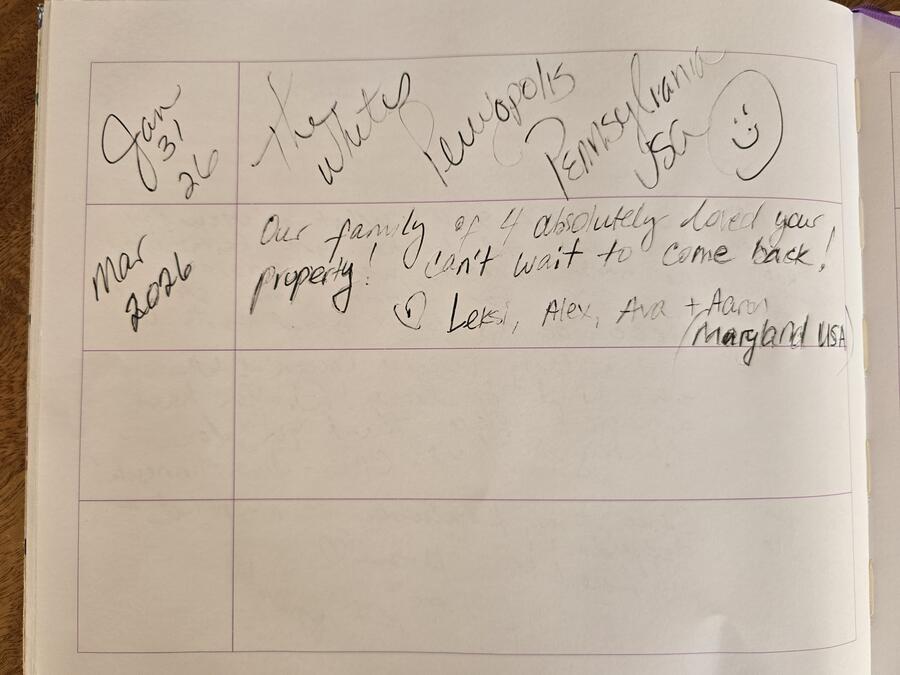 Jan
31
26
The
Whites
Perryopolis
Pennsylvania
USA
Mar
2026
Our family of 4 absolutely loved your
property! Can't wait to come back!
Leksi, Alex, Ava + Aaron
(Maryland USA)